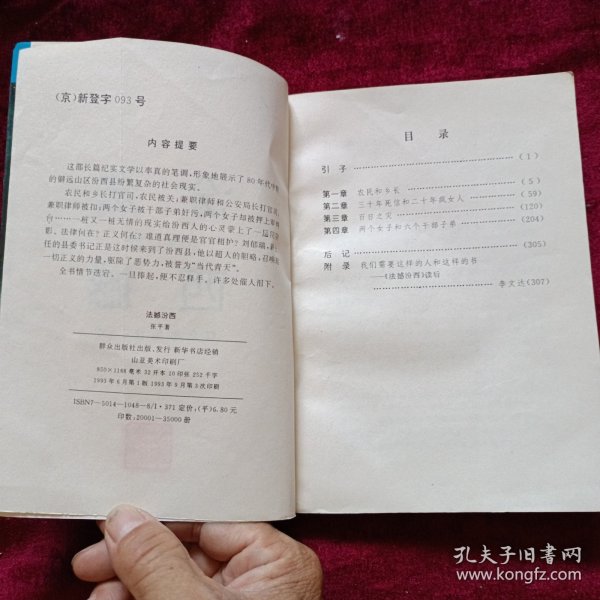 （京）新登字093号
内容提要
这部长篇纪实文学以率真的笔调，形象地展示了80年代中期
的僻远山区汾西县纷繁复杂的社会现实。
农民和乡长打官司，农民被关；兼职律师和公安局长打官司，
兼职律师被扣；两个女子被干部子弟奸污，两个女子却被押上审判
台………一桩又一桩无情的现实给汾西人的心灵蒙上了一层
影。法律何在？正义何在？难道真理便是官官相护？刘郁瑞，
任的县委书记正是这时候来到了汾西县，他以超人的胆略，召唤
一切正义的力量，驱除了恶势力，被誉为“当代青天”。
全书情节浩宕，一旦捧起，便不忍释手。许多处催人泪下。
法撼汾西
张平著
群众出版社出版、发行 新华书店经销
山亚美术印刷厂
850×1168毫米 32开本 10印张 252千字
1993年6月第1版 1993年9月第3次印刷
ISBN7—5014—1048—8/I·371 定价：（平）6.80元
印数：20001—35000册
目 录
引 子 ……………………………………（1）
第一章 农民和乡长 ……………………………………（5）
第二章 三十年冤信和二十年疯女人 ……………………（59）
第三章 百日之灾 ……………………………………（120）
第四章 两个女子和六个干部子弟 ……………………（204）
后 记 ……………………………………（305）
附 录 我们需要这样的人和这样的书
——《法撼汾西》读后
……………………………………李文达（307）
孔夫子旧书网
www.kongfz.com